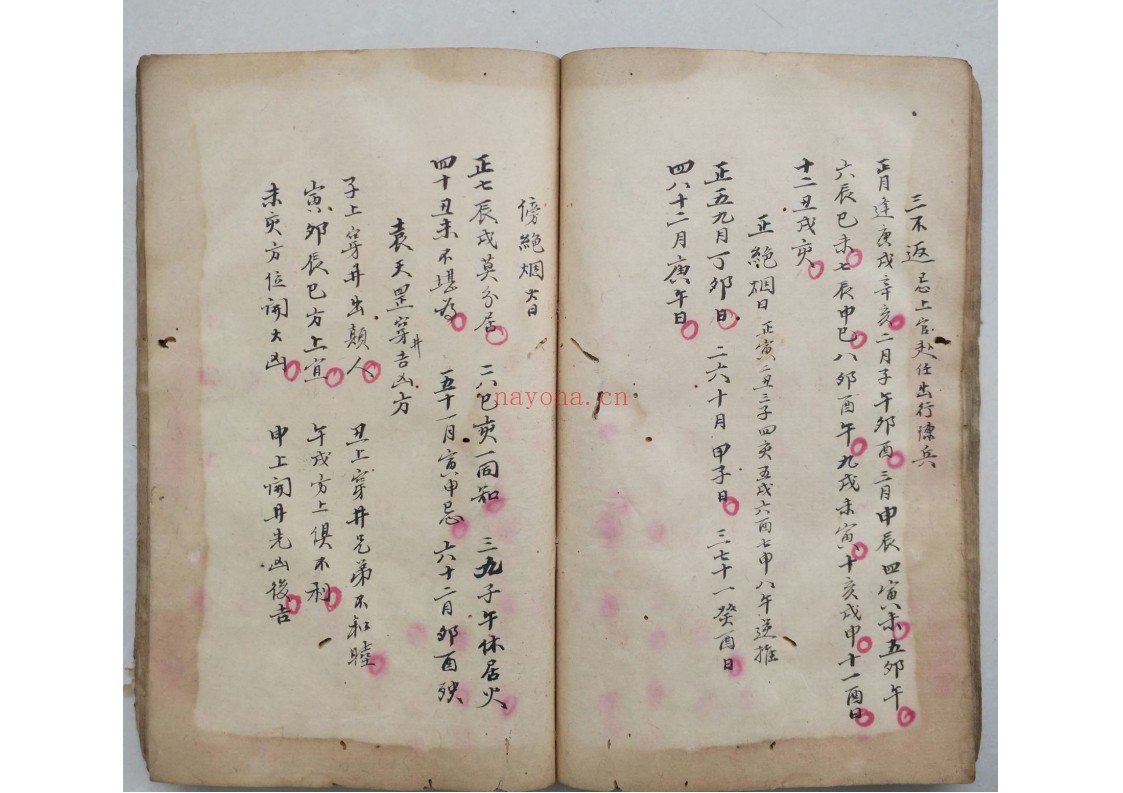 三不返 忌上官赴任出行操兵
正月逢庚戌辛亥 二月子午卯酉 三月申辰 四寅未 五卯午
六辰巳未 七辰申巳 八卯酉午 九戌未寅 十亥戌申 十一酉日
十二丑戌亥
正絕烟日 正寅二丑三子四亥五戌六酉七申八午逆推
正五九月丁卯日 二六十月甲子日 三七十一癸酉日
四八十二月庚午日
傍絕烟火日
正七辰戌莫分居 二八巳亥一同知 三九子午休居火
四十丑未不堪為 五十一月寅申忌 六十二月卯酉殃
袁天罡穿井吉凶方
子上穿井出顛人 丑上穿井兄弟不和睦
寅卯辰巳方上宜 午戌方上俱不利
未亥方位開大凶 申上開井先凶後吉
nayona.cn